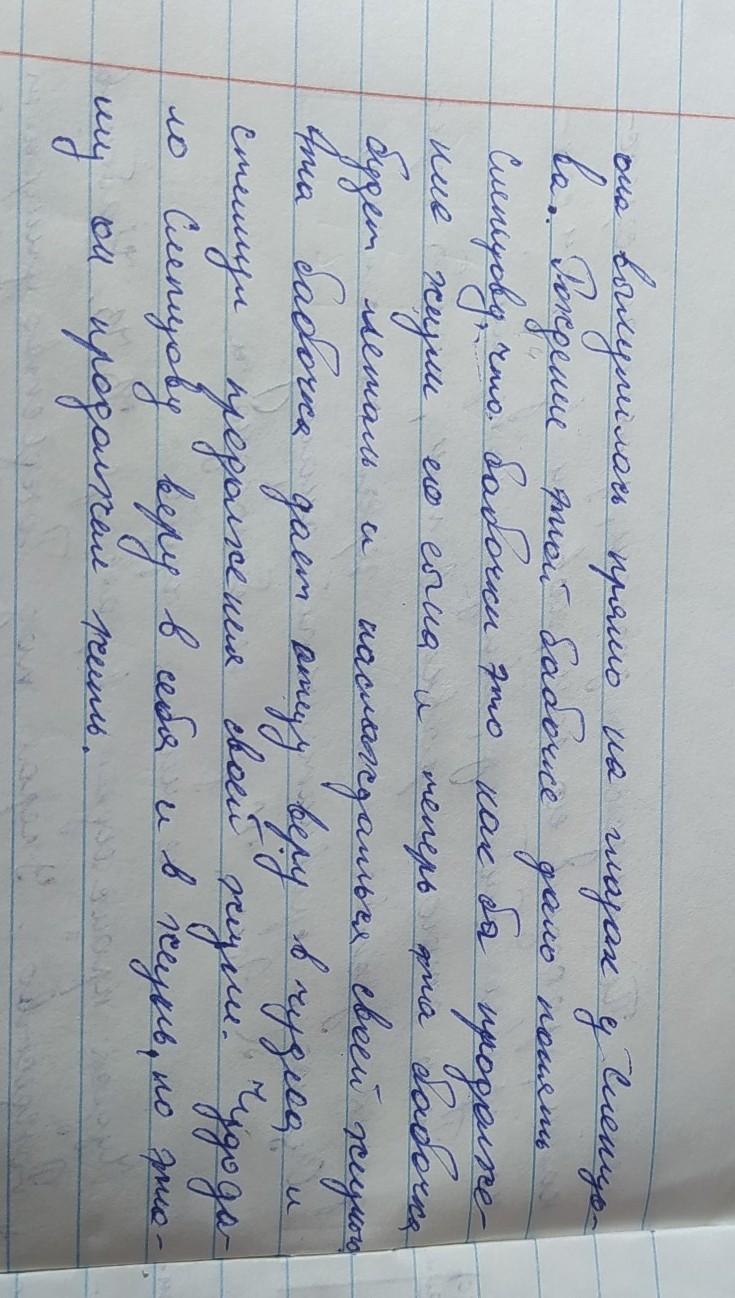 она вылупилась прямо на глазах у Слепцо-
ва. Рождение этой бабочке дало понять
Слепцову, что бабочки это как бы продолже-
ние жизни его сына и теперь эта бабочка
будет летать и наслаждаться своей жизнью
эта бабочка дает отцу веру в чудеса и
стимул продолжения своей жизни. Чудо да-
ло Слепцову веру в себя и в жизнь, по это-
му он продолжел жить.